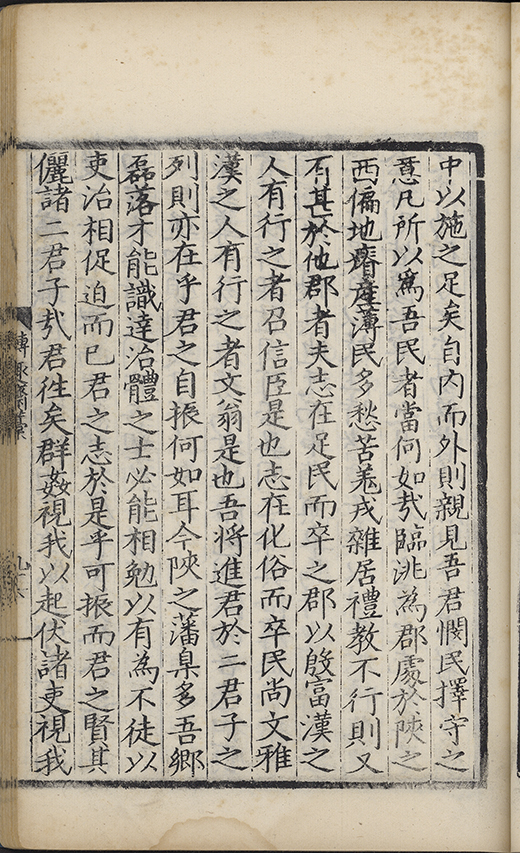 中以施之足矣自内而外則親見吾君憫民擇守之
意凡所以爲吾民者當何如㢤臨洮為郡處於陜之
西偏地瘠產薄民多愁苦羗戎雜居禮教不行則又
有甚於他郡者夫志在足民而卒之郡以殷富漢之
人有行之者召信臣是也志在化俗而卒民尚文雅
漢之人有行之者文翁是也吾將進君於二君子之
列則亦在乎君之自振何如耳今陜之藩臬多吾鄉
磊落才能識達治體之士必能相勉以有為不徒以
吏治相促迫而已君之志於是乎可振而君之賢其
儷諸二君子㢤君徃矣群姦視我以起伏諸吏視我